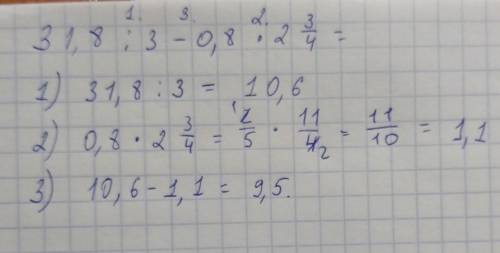 1. 3. 2.
31,8 : 3 - 0,8 · 2 3/4 =
1) 31,8 : 3 = 10,6
2) 0,8 · 2 3/4 = 2/5 · 11/4 = 11/10 = 1,1
3) 10,6 - 1,1 = 9,5.